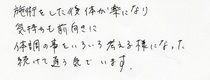 施術をした後体が楽になり
気持ちも前向きに
体調の事をいろいろ考える様になった
続けて通う息でいます。